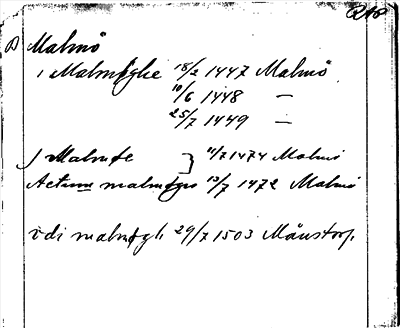 Malmö
i Malmøghe 18/2 1447 Malmö
10/6 1448 —
25/7 1449 —
J Malmøe } 11/7 1474 Malmö
Actum malmøgis 13/7 1472 Malmö
i malmøgh 29/7 1503 Månstorp.